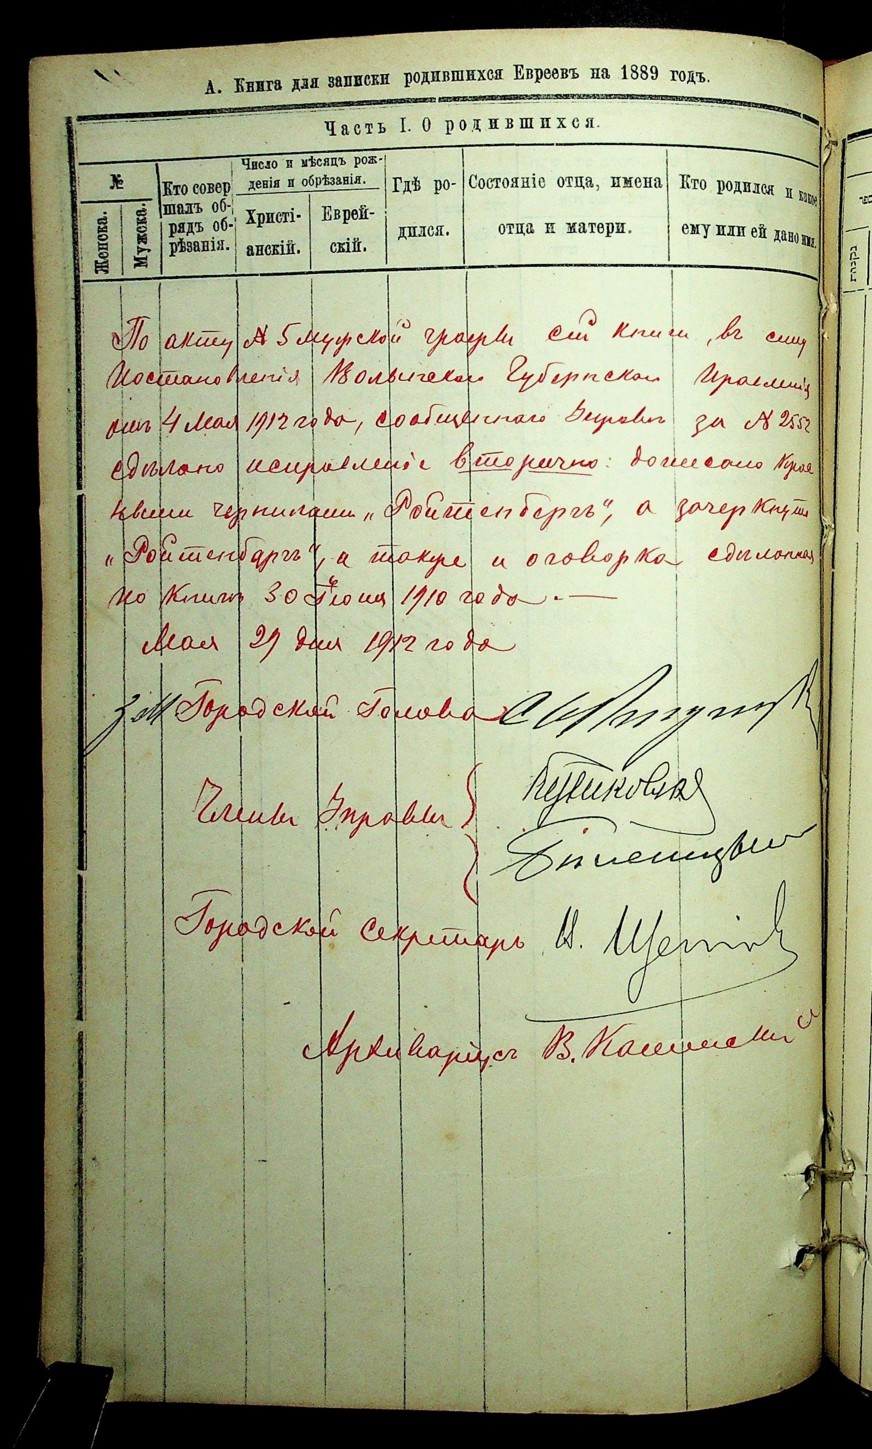 А. Книга для записки родившихся Евреевъ на 1889 годъ.
Часть I. О родившихся.
№
Женска.
Мужска.
Кто совер
шалъ об-
рядъ об-
рѣзанія.
Число и мѣсяцъ рож-
денія и обрѣзанія.
Христі-
анскій.
Еврей-
скій.
Гдѣ ро-
дился.
Состояніе отца, имена
отца и матери.
Кто родился и какое
ему или ей дано имя.
По акту № 5 мужской графы сей книги, въ силу
Постановленія Волынскаго Губернскаго Правленія
отъ 4 Мая 1912 года, сообщеннаго Управѣ за № 2552
сдѣлано исправленіе вторично: дописано крас
ными чернилами „Ройтенбергъ", а зачеркнуто
„Ройтенбаргъ", а также и оговорка сдѣланная
по книгѣ 30 Іюня 1910 года. —
Мая 29 дня 1912 года
Городской Голова
Члены Управы
Городской Секретарь
Архиваріусъ В.